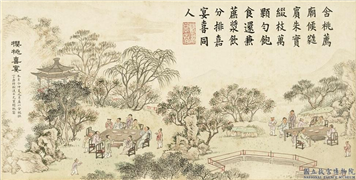 含桃薦
廟候蕤
賓朱實
綴枝萬
顆勻飽
食還兼
蔗漿飲
分排嘉
宴喜同
人
櫻桃喜宴
國立故宮博物院